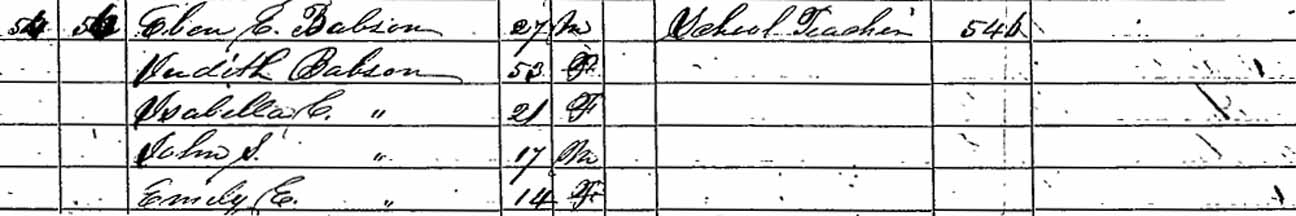 Eben E. Babson 27 M School Teacher
Judith Babson 53 F
Isabella C. " 21 F
John S. " 17 M
Emily E. " 14 F